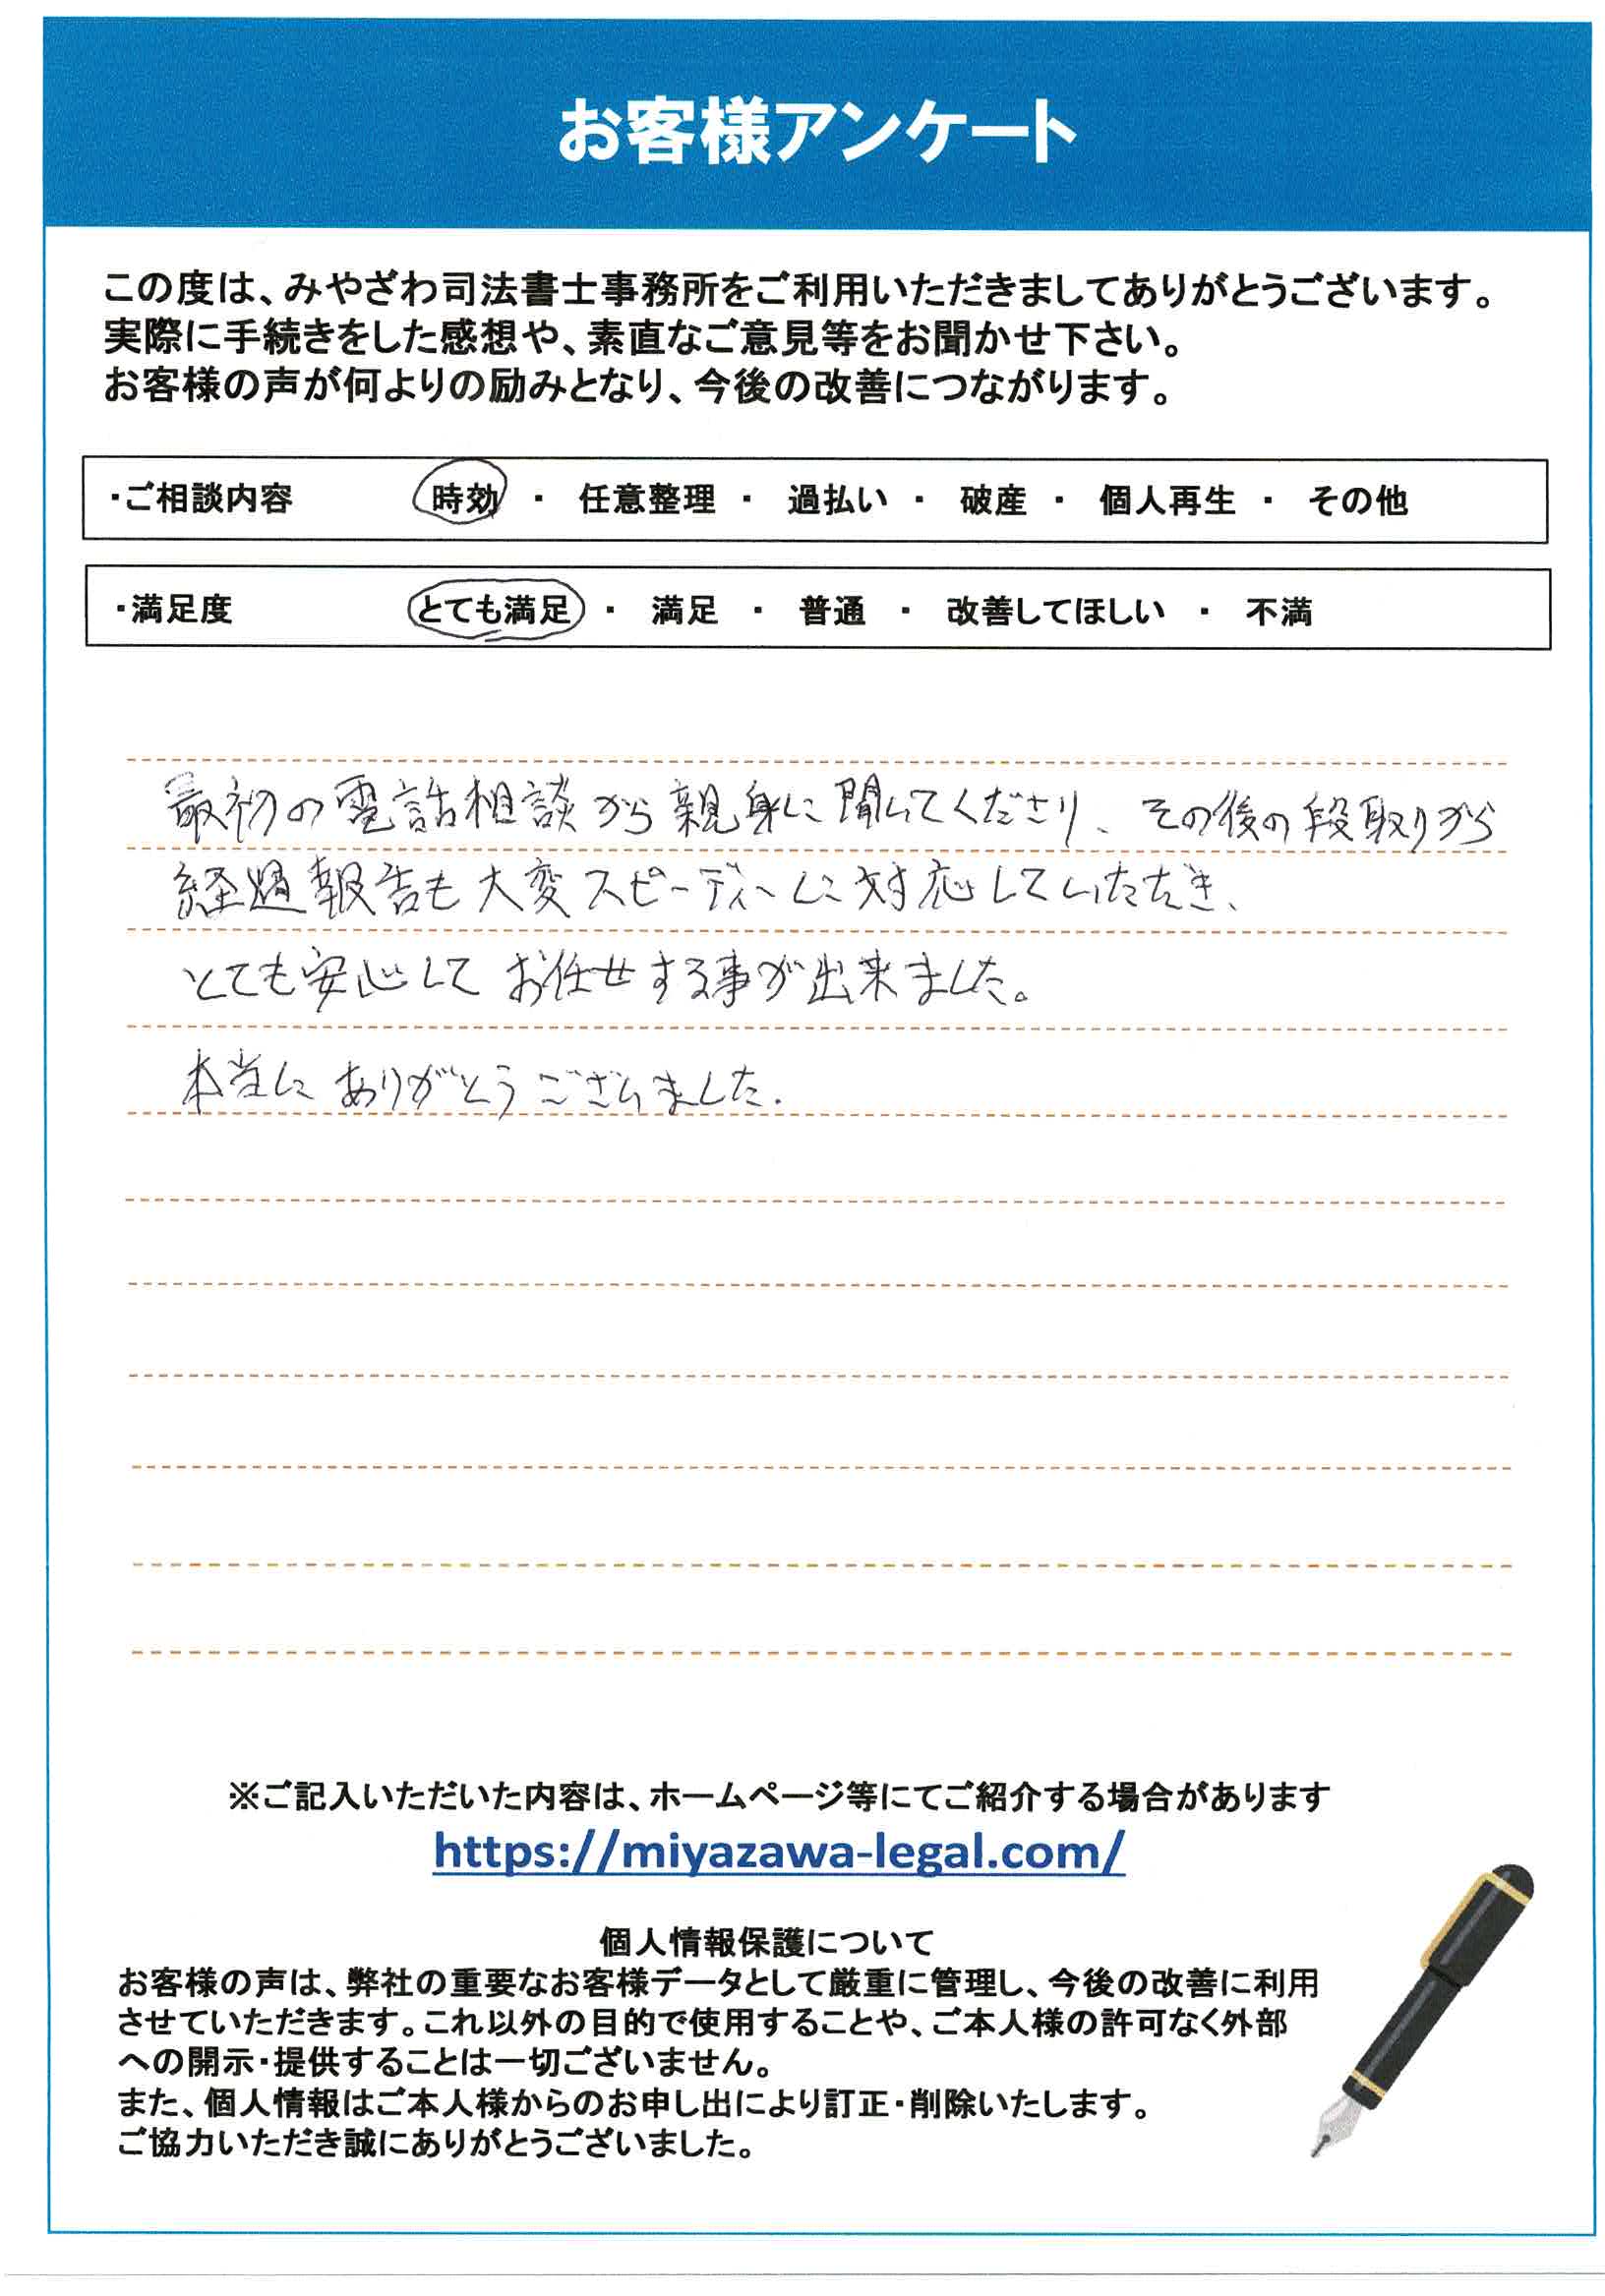 お客様アンケート
この度は、みやざわ司法書士事務所をご利用いただきましてありがとうございます。
実際に手続きをした感想や、素直なご意見等をお聞かせ下さい。
お客様の声が何よりの励みとなり、今後の改善につながります。
・ご相談内容 時効 ・ 任意整理 ・ 過払い ・ 破産 ・ 個人再生 ・ その他
・満足度 とても満足 ・ 満足 ・ 普通 ・ 改善してほしい ・ 不満
最初の電話相談から親身に聞いてくださり、その後の段取りから
経過報告も大変スピーディーに対応していただき、
とても安心してお任せする事が出来ました。
本当にありがとうございました.
※ご記入いただいた内容は、ホームページ等にてご紹介する場合があります
https://miyazawa-legal.com/
個人情報保護について
お客様の声は、弊社の重要なお客様データとして厳重に管理し、今後の改善に利用
させていただきます。これ以外の目的で使用することや、ご本人様の許可なく外部
への開示・提供することは一切ございません。
また、個人情報はご本人様からのお申し出により訂正・削除いたします。
ご協力いただき誠にありがとうございました。